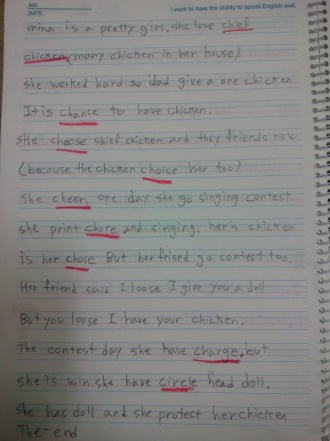 NO.
DATE.
I want to have the ability to speak English well.
mina is a pretty girl. she love chief
chicken (many chicken in her house)
she worked hard so dad give a one chicken
It is chance to have chicken.
SHe choose chief chicken and they friends now
(because the chicken choice her too)
She cheer one day she go singing contest
she print chore and singing, her's chicken
is her chose But her friend go contest too.
Her friend said I loose I give you a doll
But you loose I have your chicken.
The contest day she have charge, but
she is win she have circle head doll.
She has doll and she protect her chicken
The-end